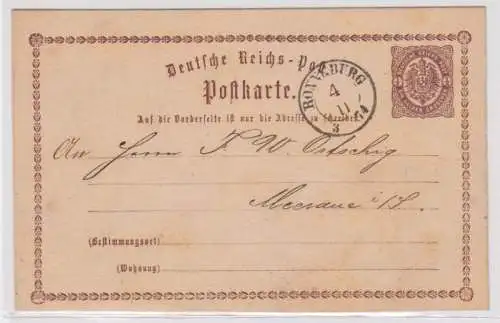 Deutsche Reichs-Post
Postkarte.
RONNEBURG
4
11
3
Auf die Vorderseite ist nur die Adresse zu schreiben.
An Herrn F. W.
Meerane i/S.
(Bestimmungsort)
(Wohnung)